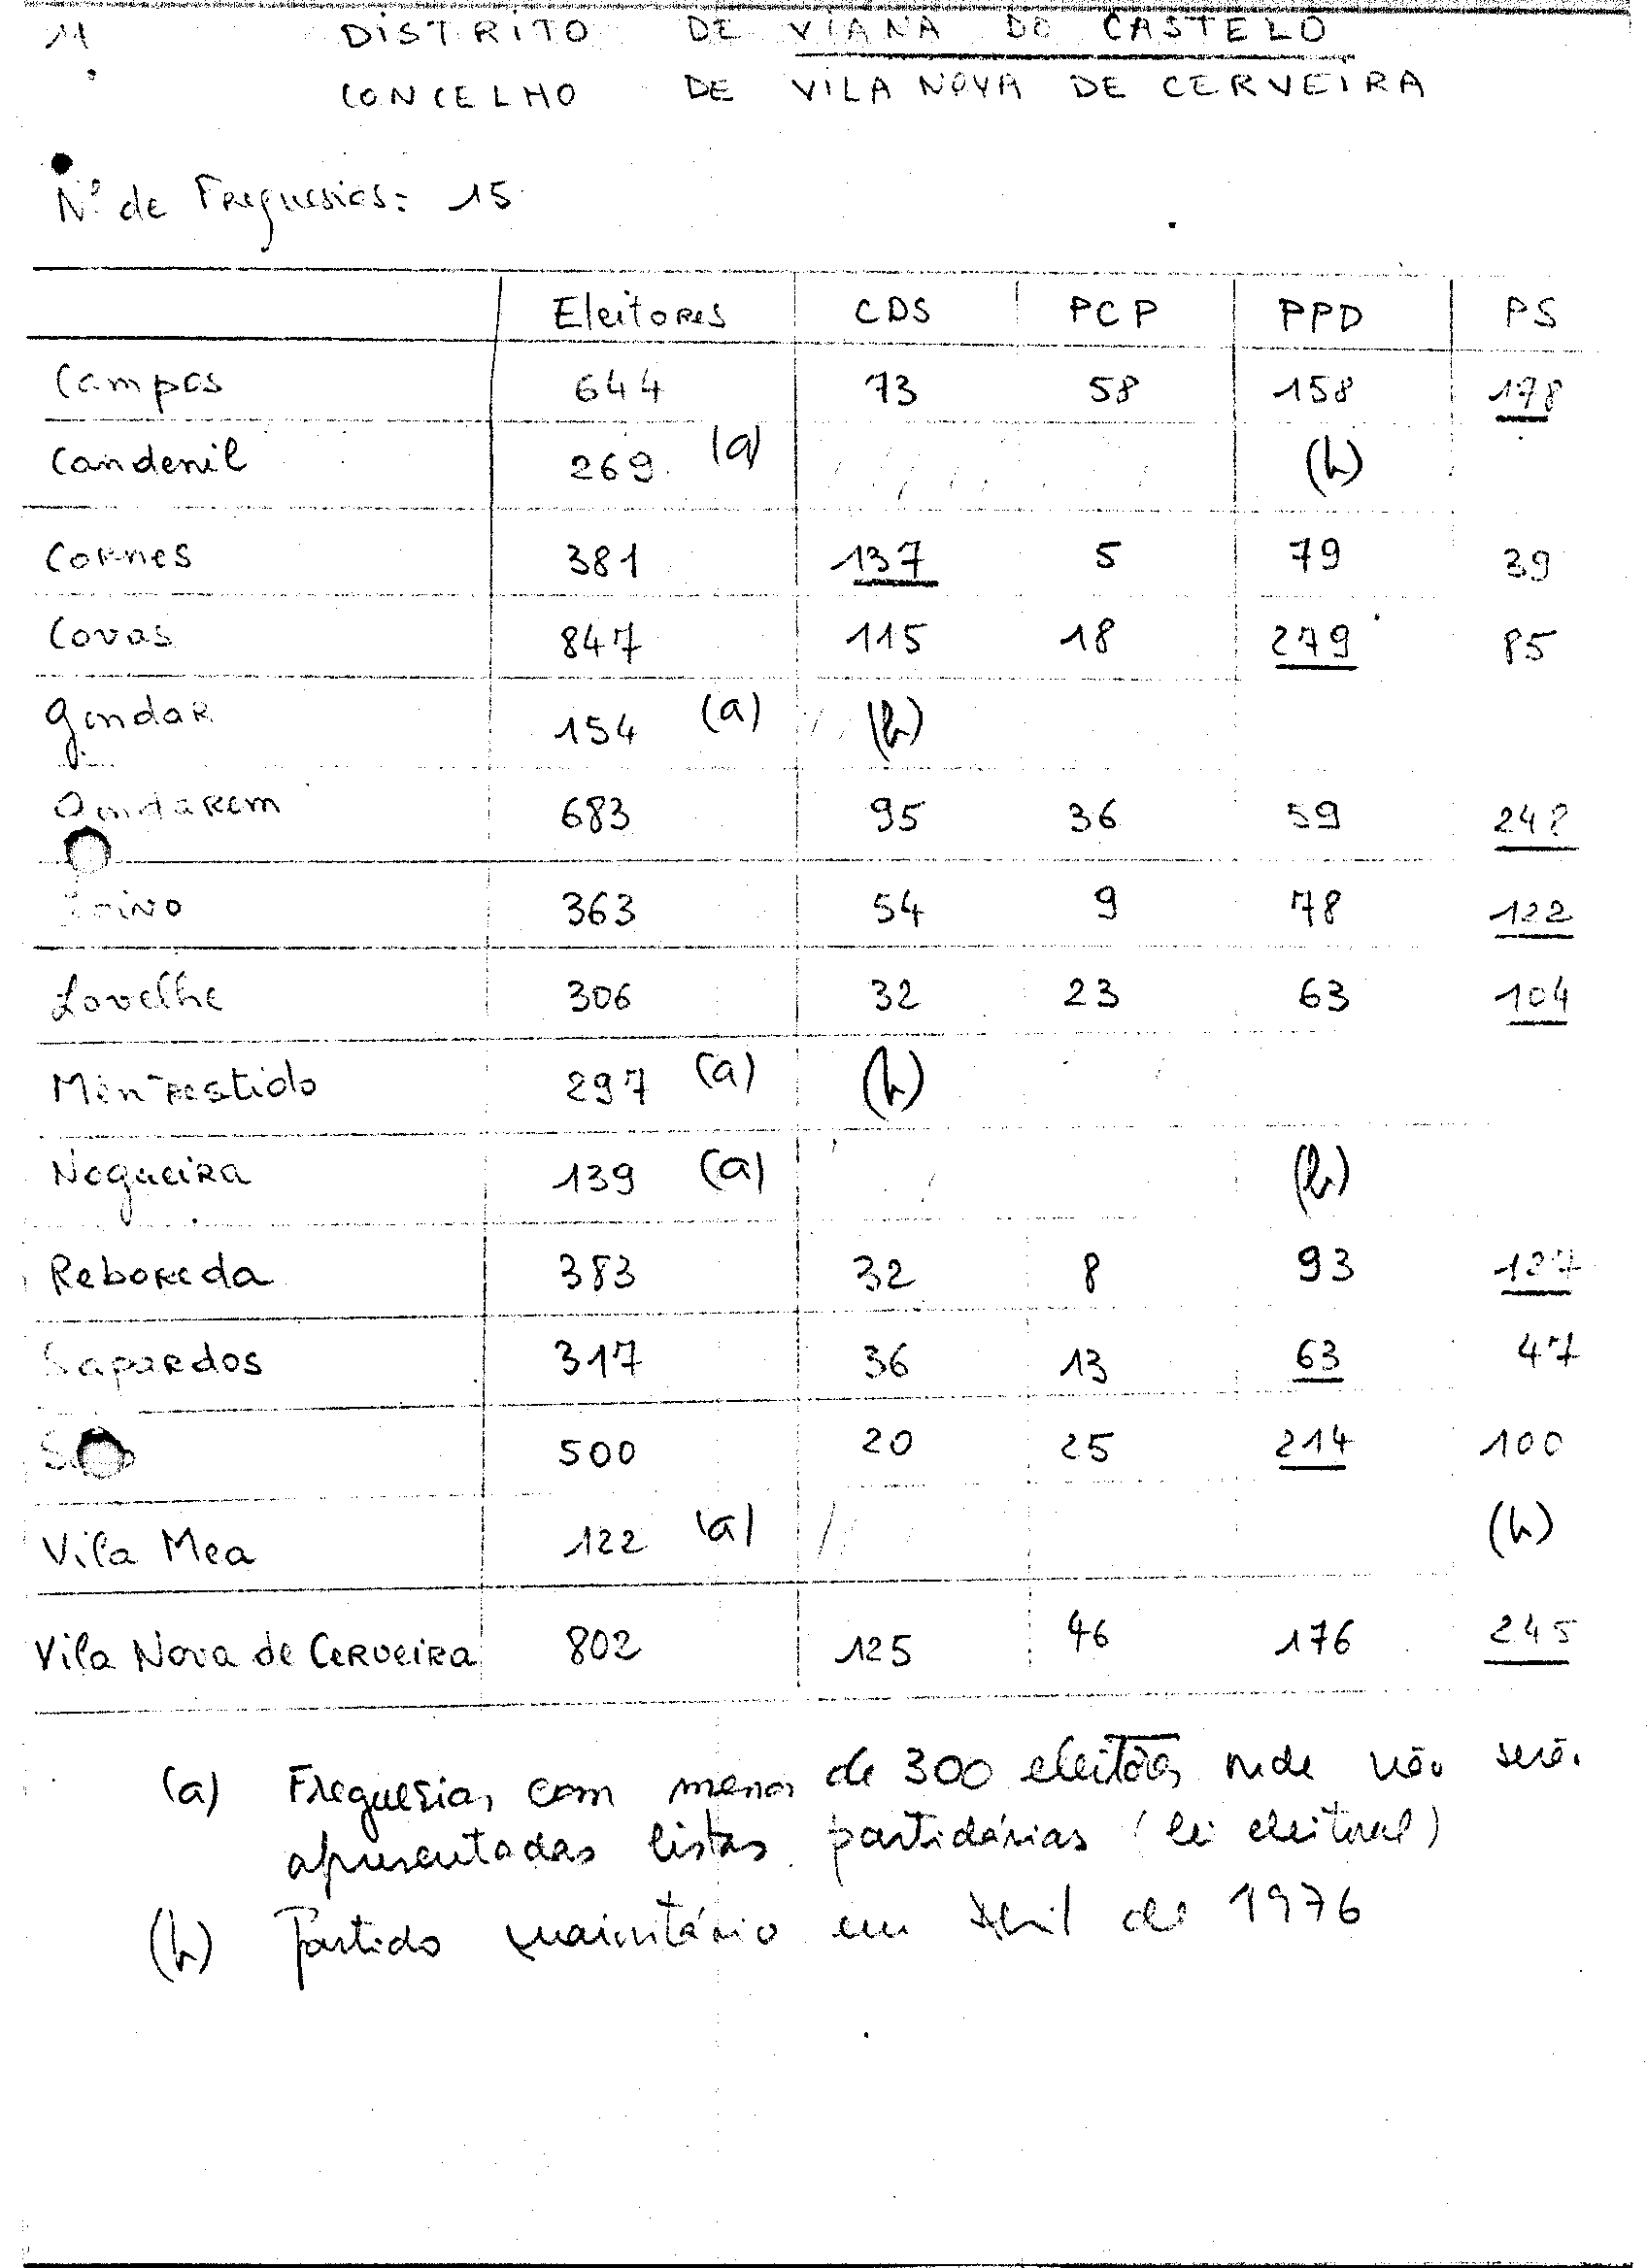 11 DISTRITO DE VIANA DO CASTELO
CONCELHO DE VILA NOVA DE CERVEIRA
Nº de Freguesias: 15
Eleitores CDS PCP PPD PS
Campos 644 73 58 158 178
Candenil 269 (a) (b)
Cornes 381 137 5 79 39
Covas 847 115 18 279 85
Gondar 154 (a) (b)
Gondarem 683 95 36 59 248
Loivo 363 54 9 78 122
Lovelhe 306 32 23 63 104
Mentrestido 297 (a) (b)
Nogueira 139 (a) (b)
Reboreda 383 32 8 93 127
Sapardos 317 36 13 63 47
500 20 25 214 100
Vila Mea 122 (a) (b)
Vila Nova de Cerveira 802 125 46 176 245
(a) Freguesias com menos de 300 eleitores onde não serão
apresentadas listas partidárias (lei eleitoral)
(b) Partido maioritário em Abril de 1976